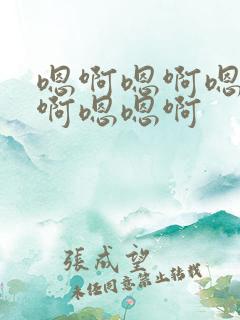 嗯啊嗯啊嗯
啊嗯嗯啊
張成望
未经同意禁止转载